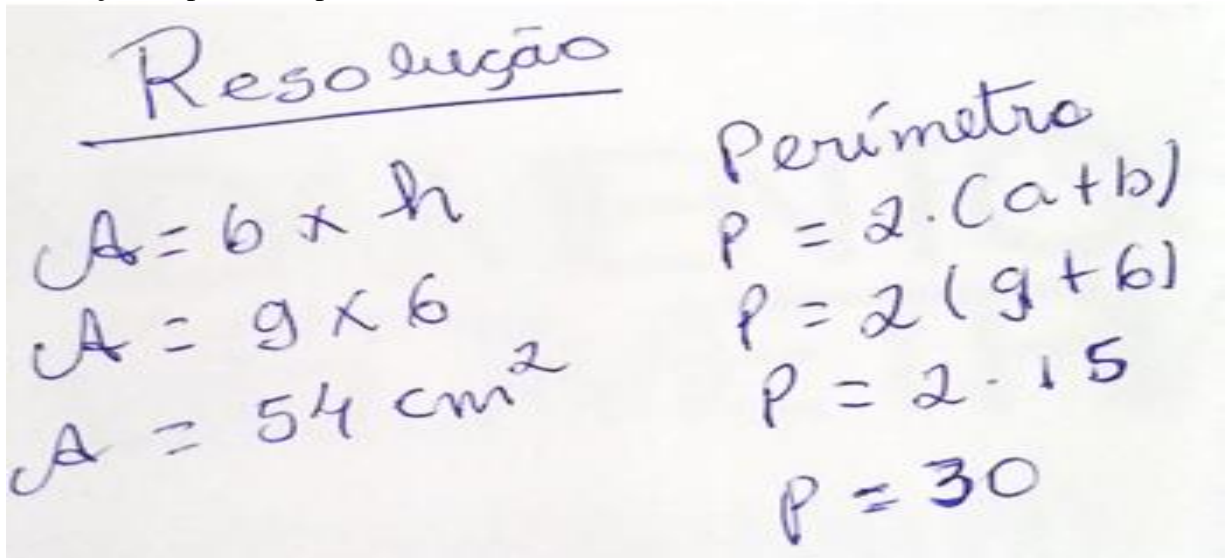 Resolução
A = b x h
A = 9 x 6
A = 54 cm²
Perímetro
P = 2.(a+b)
P = 2(9+6)
P = 2.15
P = 30